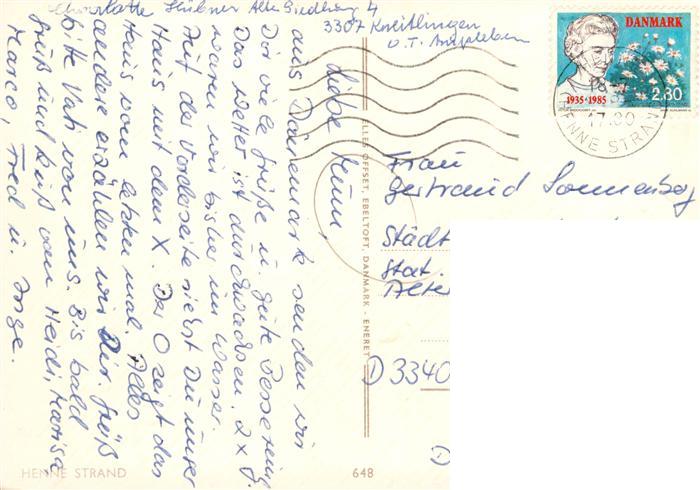 Charlotte Hübner Alte Siedlung 4
3307 Kneitlingen
O.T. Ampleben
DANMARK
1935 • 1985
2.80
17.00
HENNE STRAND
Liebe Mum,
aus Dänemark senden wir
Dir viele Grüße u. gute Besserung
Das Wetter ist durchwachsen. 2 x
waren wir bisher im Wasser.
Auf der Vorderseite siehst Du unser
Haus mit dem X. Der O zeigt das
Haus vom letzten mal. Alles
andere erzählen wir Dir. Grüß
bitte Vati von uns. Bis bald
Gruß und Kuß von Heidi, Marisa
Marco, Fred u. Inge.
ELLES OFFSET, EBELTOFT, DANMARK - ENERET
Frau
Gertraud Sonnenberg
Städt
Stat.
Alter
D 3340
HENNE STRAND
648